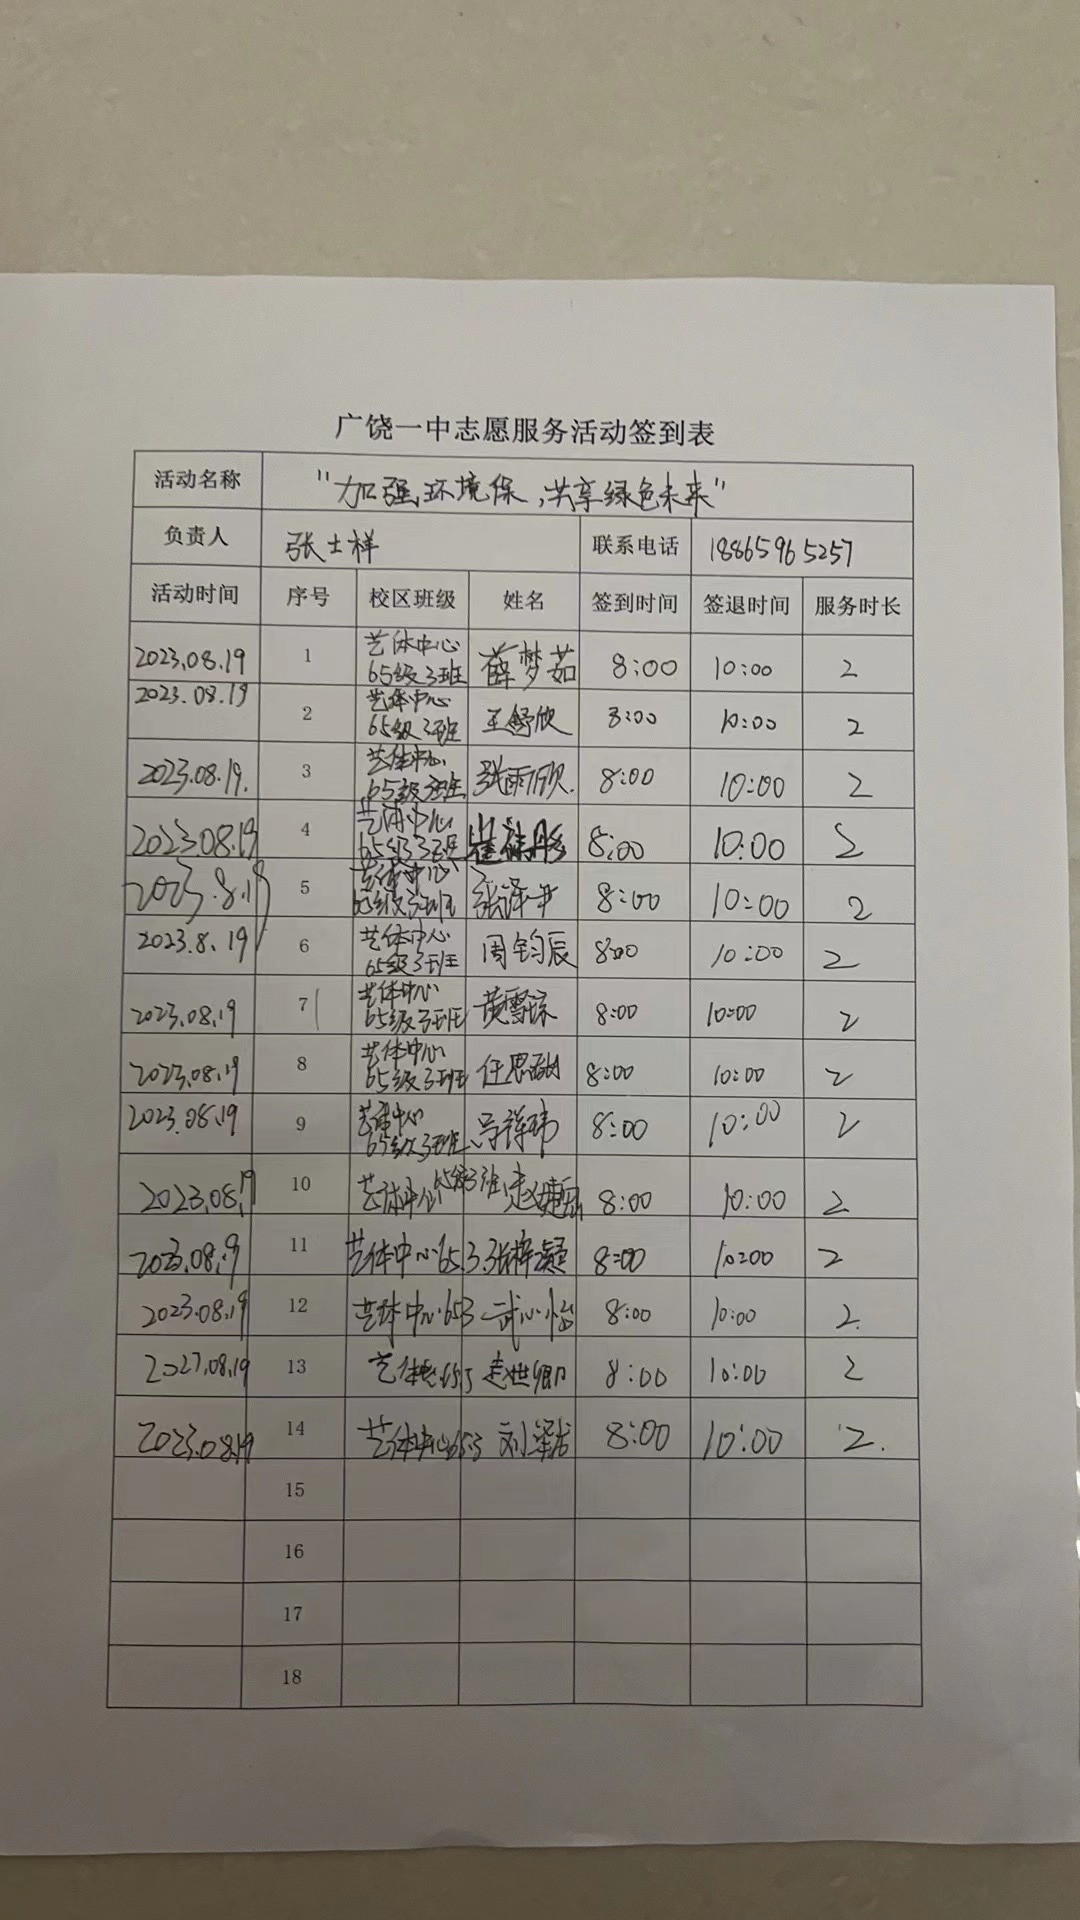 广饶一中志愿服务活动签到表
活动名称 "加强环境保,共享绿色未来"
负责人 张士祥 联系电话 18865965257
活动时间 序号 校区班级 姓名 签到时间 签退时间 服务时长
2023.08.19 1 艺体中心 65级3班 薛梦茹 8:00 10:00 2
2023.08.19 2 艺体中心 65级3班 王舒欣 8:00 10:00 2
2023.08.19. 3 艺体中心 65级3班 张雨欣. 8:00 10:00 2
2023.08.19 4 艺体中心 65级3班 崔 8:00 10:00 2
2023.8.19 5 艺体中心 65级3班 张泽 8:00 10:00 2
2023.8.19 6 艺体中心 65级3班 周钧辰 8:00 10:00 2
2023.08.19 7 艺体中心 65级3班 黄雪 8:00 10:00 2
2023.08.19 8 艺体中心 65级3班 任思 8:00 10:00 2
2023.08.19 9 艺体中心 65级3班 玮 8:00 10:00 2
2023.08.19 10 艺体中心 65级3班 赵 8:00 10:00 2
2023.08.19 11 艺体中心65.3 张梓凝 8:00 10:00 2
2023.08.19 12 艺体中心653 武心怡 8:00 10:00 2.
08.19 13 艺体 世卿 8:00 10:00 2
2023.08.19 14 艺体中心65.3 刘 8:00 10:00 2.
15
16
17
18